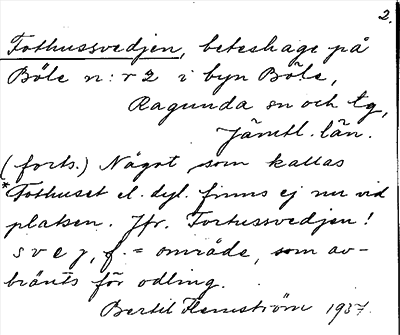 2.
Tothussvedjen, beteshage på
Böle n:r 2 i byn Böle,
Ragunda sn och tg,
Jämtl. län.
(forts.) Något som kallas
*Tothuset el. dyl. finns ej nu vid
platsen. Jfr. Tortussvedjen!
svej, f. = område, som av-
bränts för odling.
Bertil Flemström 1937.